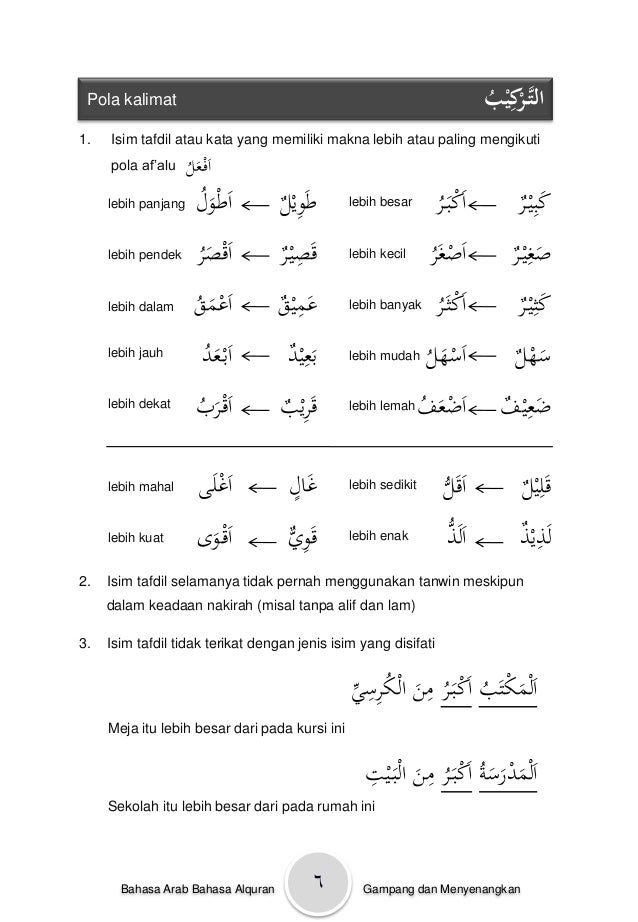 Pola kalimat اَلتَّرْكِيْبُ
1. Isim tafdil atau kata yang memiliki makna lebih atau paling mengikuti
pola af’alu اَفْعَلُ
lebih panjang اَطْوَلُ ← طَوِيْلٌ lebih besar اَكْبَرُ ← كَبِيْرٌ
lebih pendek اَقْصَرُ ← قَصِيْرٌ lebih kecil اَصْغَرُ ← صَغِيْرٌ
lebih dalam اَعْمَقُ ← عَمِيْقٌ lebih banyak اَكْثَرُ ← كَثِيْرٌ
lebih jauh اَبْعَدُ ← بَعِيْدٌ lebih mudah اَسْهَلُ ← سَهْلٌ
lebih dekat اَقْرَبُ ← قَرِيْبٌ lebih lemah اَضْعَفُ ← ضَعِيْفٌ
lebih mahal اَغْلَى ← غَالٍ lebih sedikit اَقَلُّ ← قَلِيْلٌ
lebih kuat اَقْوَى ← قَوِيٌّ lebih enak اَلَذُّ ← لَذِيْذٌ
2. Isim tafdil selamanya tidak pernah menggunakan tanwin meskipun
dalam keadaan nakirah (misal tanpa alif dan lam)
3. Isim tafdil tidak terikat dengan jenis isim yang disifati
اَلْمَكْتَبُ اَكْبَرُ مِنَ الْكُرْسِيِّ
Meja itu lebih besar dari pada kursi ini
اَلْمَدْرَسَةُ اَكْبَرُ مِنَ الْبَيْتِ
Sekolah itu lebih besar dari pada rumah ini
Bahasa Arab Bahasa Alquran ٦ Gampang dan Menyenangkan